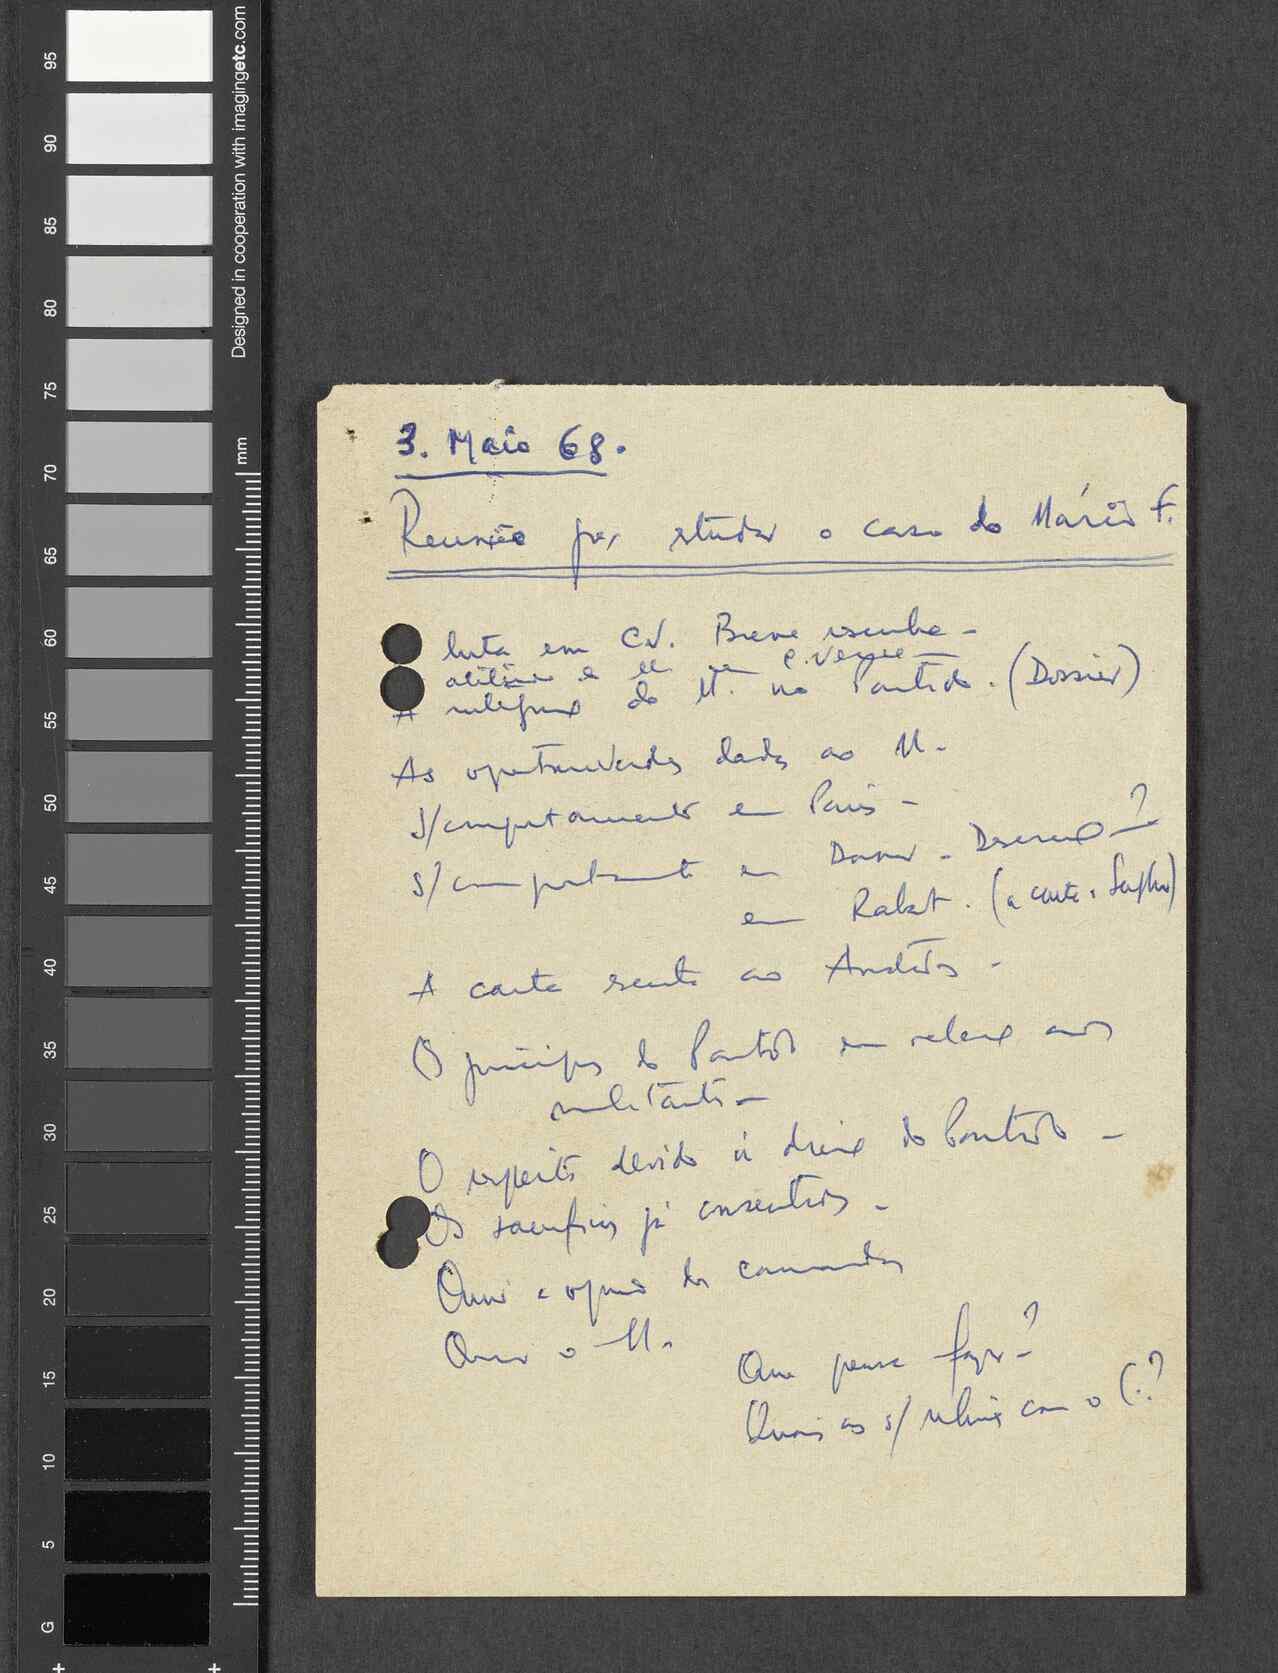 95
90
85
80
75
70
65
60
55
50
45
40
35
30
25
20
15
10
5
G
Designed in cooperation with imagingetc.com
mm
3. Maio 68.
Reunião para estudar o caso do Mário F.
luta em C.V. Breve resenha -
C. Verde
A do M. no Partido. (Dossier)
As oportunidades dadas ao M.
S/comportamento em Paris -
s/comportamento em - ?
em Rabat. (a carta
A carta ao -
O princípios do Partido em relação aos
militantes -
O respeito devido à direcção do Partido -
Os sacrifícios já consentidos -
Ouvir a opinião dos camaradas
Ouvir o M.
Que pensa fazer?
Quais as s/ relações com o C.?